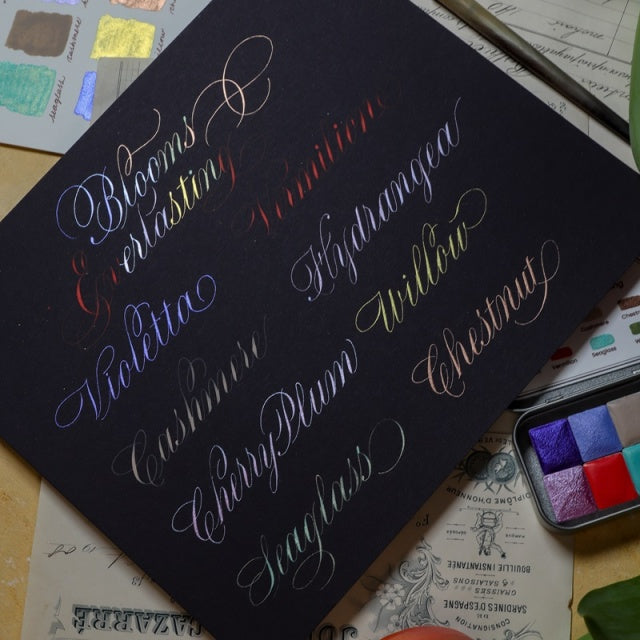 Blooms
Everlasting
Vermilion
Violetta
Hydrangea
Cashmere
Willow
CherryPlum
Chestnut
Seaglass
seaglass
cashmere
Seaglass
DIPLÔME D'HONNEUR
BOUILLIE INSTANTANÉE
GRAISSES & SALAISONS
SARDINES D'ESPAGNE
CONSIGNATION
CAZARRÉ